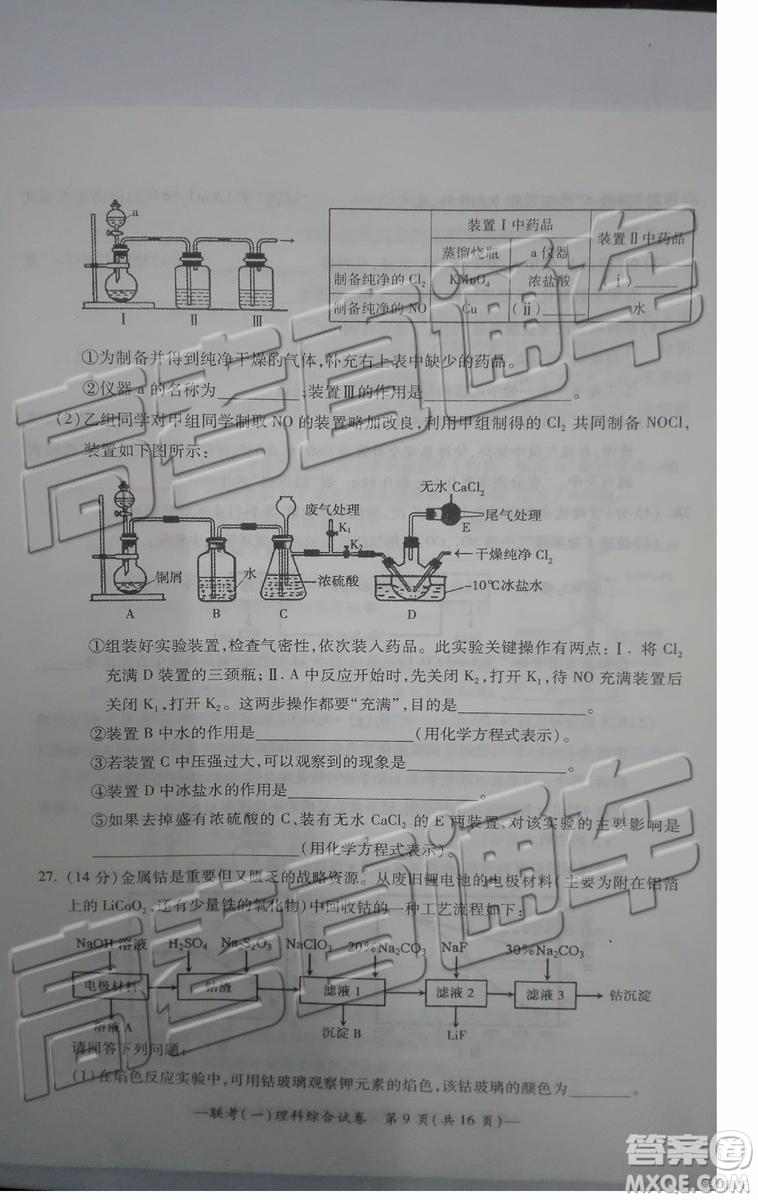 a
Ⅰ Ⅱ Ⅲ
装置Ⅰ中药品 装置Ⅱ中药品
蒸馏烧瓶 a仪器
制备纯净的Cl₂ KMnO₄ 浓盐酸 (ⅰ)______
制备纯净的NO Cu (ⅱ)______ 水
①为制备并得到纯净干燥的气体,补充右上表中缺少的药品。
②仪器a的名称为________;装置Ⅲ的作用是______________。
(2)乙组同学对甲组同学制取NO的装置略加改良,利用甲组制得的Cl₂共同制备NOCl,
装置如下图所示:
无水CaCl₂
废气处理 尾气处理
K₁ E
K₂ 干燥纯净Cl₂
铜屑 水 浓硫酸 -10℃冰盐水
A B C D
①组装好实验装置,检查气密性,依次装入药品。此实验关键操作有两点:Ⅰ.将Cl₂
充满D装置的三颈瓶;Ⅱ.A中反应开始时,先关闭K₂,打开K₁,待NO充满装置后
关闭K₁,打开K₂。这两步操作都要“充满”,目的是____________。
②装置B中水的作用是______________(用化学方程式表示)。
③若装置C中压强过大,可以观察到的现象是______________。
④装置D中冰盐水的作用是______________。
⑤如果去掉盛有浓硫酸的C、装有无水CaCl₂的E两装置,对该实验的主要影响是
__________________(用化学方程式表示)。
27.(14分)金属钴是重要但又匮乏的战略资源。从废旧锂电池的电极材料(主要为附在铝箔
上的LiCoO₂,还有少量铁的氧化物)中回收钴的一种工艺流程如下:
NaOH溶液 H₂SO₄ Na₂S₂O₃ NaClO₃ 20%Na₂CO₃ NaF 30%Na₂CO₃
电极材料 钴渣 滤液1 滤液2 滤液3 钴沉淀
溶液A 沉淀B LiF
请回答下列问题:
(1)在焰色反应实验中,可用钴玻璃观察钾元素的焰色,该钴玻璃的颜色为______。
—联考(一)理科综合试卷 第9页(共16页)—
高考直通车
高考直通车
答案圈
MXQE.COM